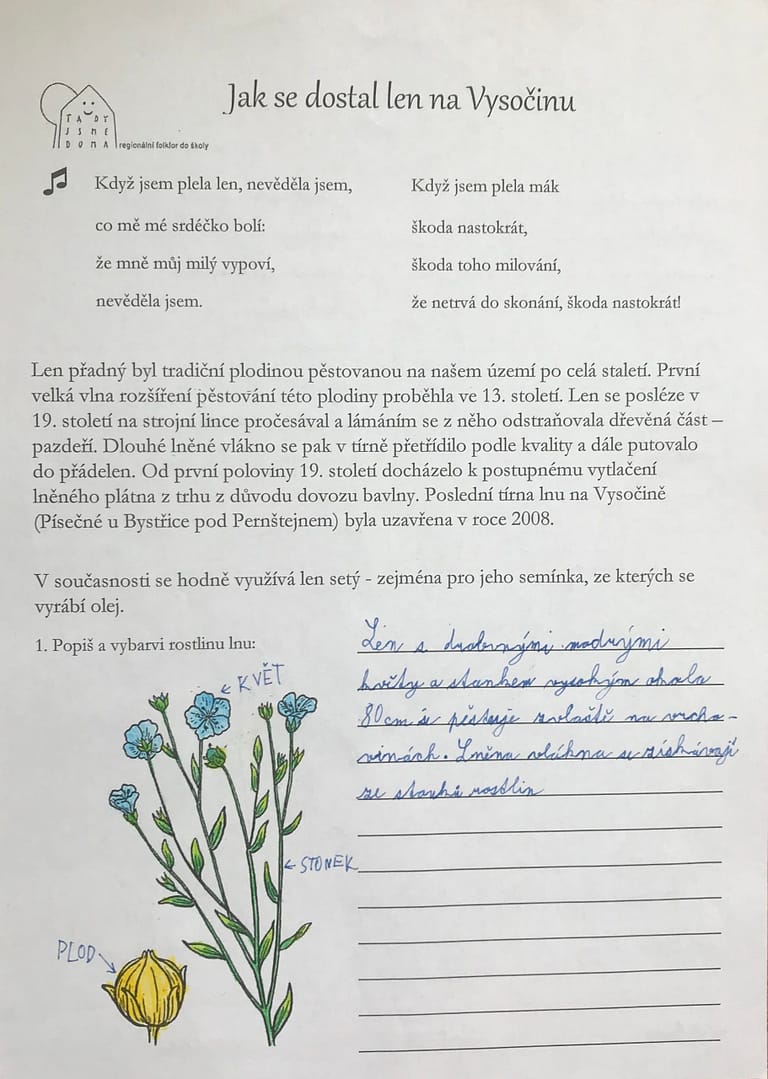 Jak se dostal len na Vysočinu
TADY
JSME
DOMA
regionální folklor do školy
Když jsem plela len, nevěděla jsem,
co mě mé srdéčko bolí:
že mně můj milý vypoví,
nevěděla jsem.
Když jsem plela mák
škoda nastokrát,
škoda toho milování,
že netrvá do skonání, škoda nastokrát!
Len přadný byl tradiční plodinou pěstovanou na našem území po celá staletí. První
velká vlna rozšíření pěstování této plodiny proběhla ve 13. století. Len se posléze v
19. století na strojní lince pročesával a lámáním se z něho odstraňovala dřevěná část –
pazdeří. Dlouhé lněné vlákno se pak v tírně přetřídilo podle kvality a dále putovalo
do přádelen. Od první poloviny 19. století docházelo k postupnému vytlačení
lněného plátna z trhu z důvodu dovozu bavlny. Poslední tírna lnu na Vysočině
(Písečné u Bystřice pod Pernštejnem) byla uzavřena v roce 2008.
V současnosti se hodně využívá len setý - zejména pro jeho semínka, ze kterých se
vyrábí olej.
1. Popiš a vybarvi rostlinu lnu:
Len s drobnými modrými
květy a stonkem vysokým okolo
80cm se pěstuje zvláště na vrcho-
vinách. Lněna vlákna se získávají
ze stonků rostlin
KVĚT
STONEK
PLOD